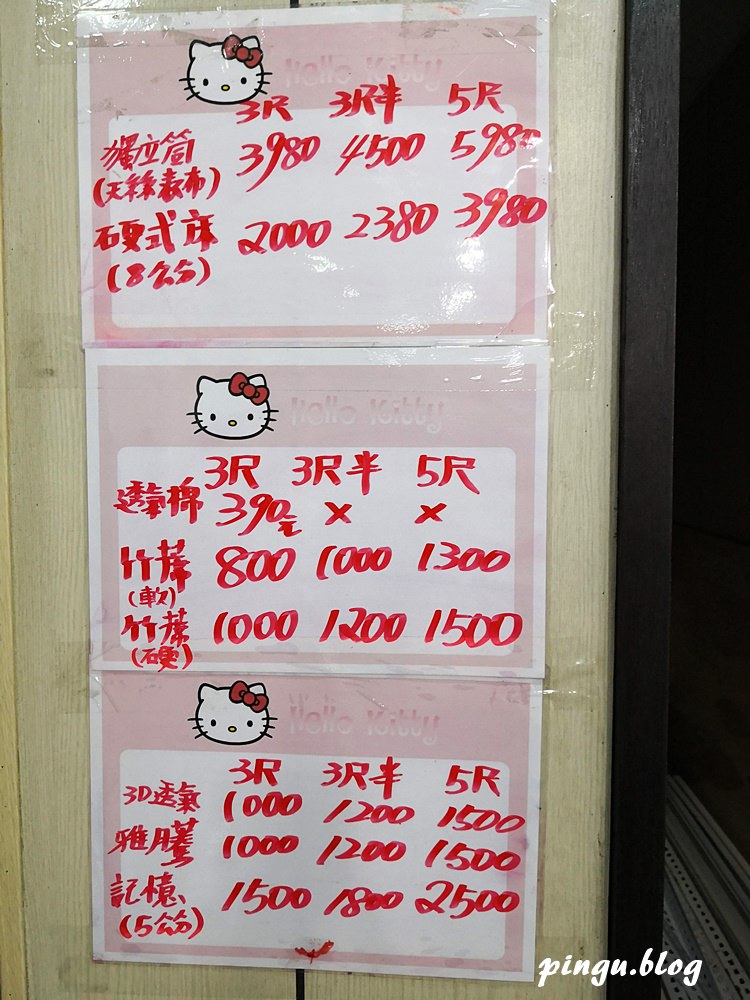 Hello Kitty
3尺 3尺半 5尺
獨立筒 3980 4500 5980
(天絲表布)
硬式床 2000 2380 3980
(8公分)
Hello Kitty
3尺 3尺半 5尺
透氣棉 390元 x x
竹蓆 800 1000 1300
(軟)
竹蓆 1000 1200 1500
(硬)
Hello Kitty
3尺 3尺半 5尺
3D透氣 1000 1200 1500
1000 1200 1500
記憶 1500 1800 2500
(5公分)
pingu.blog